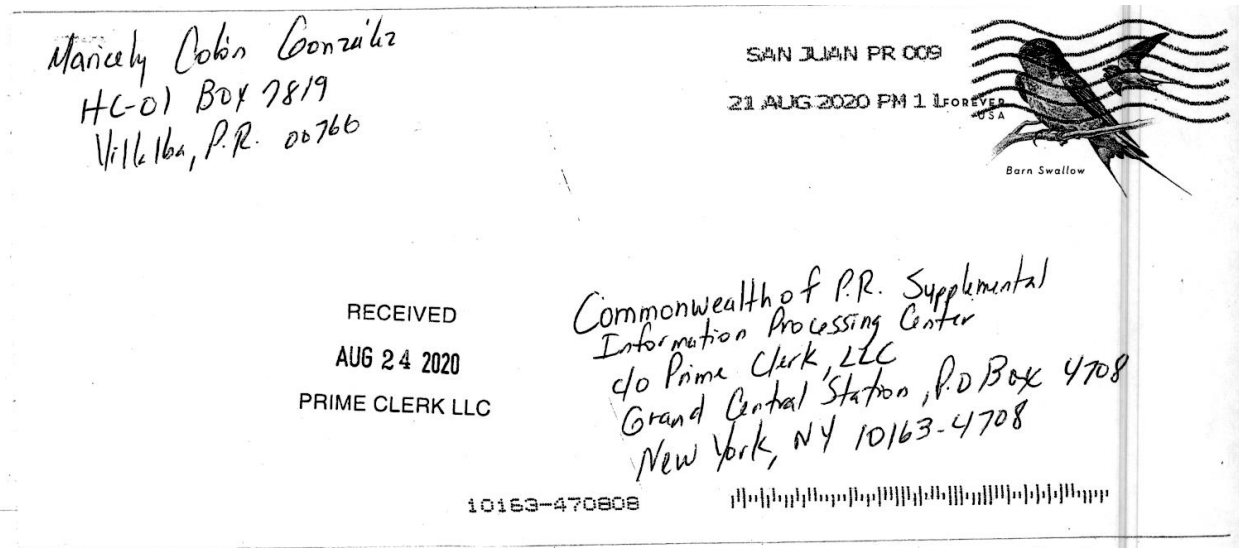 Maricely Colón González
HC-01 Box 7819
Villalba, P.R. 00766
SAN JUAN PR 009
21 AUG 2020 PM 1 L
FOREVER
USA
Barn Swallow
RECEIVED
AUG 24 2020
PRIME CLERK LLC
Commonwealth of P.R. Supplemental
Information Processing Center
c/o Prime Clerk, LLC
Grand Central Station, P.O Box 4708
New York, NY 10163-4708
10163-470808